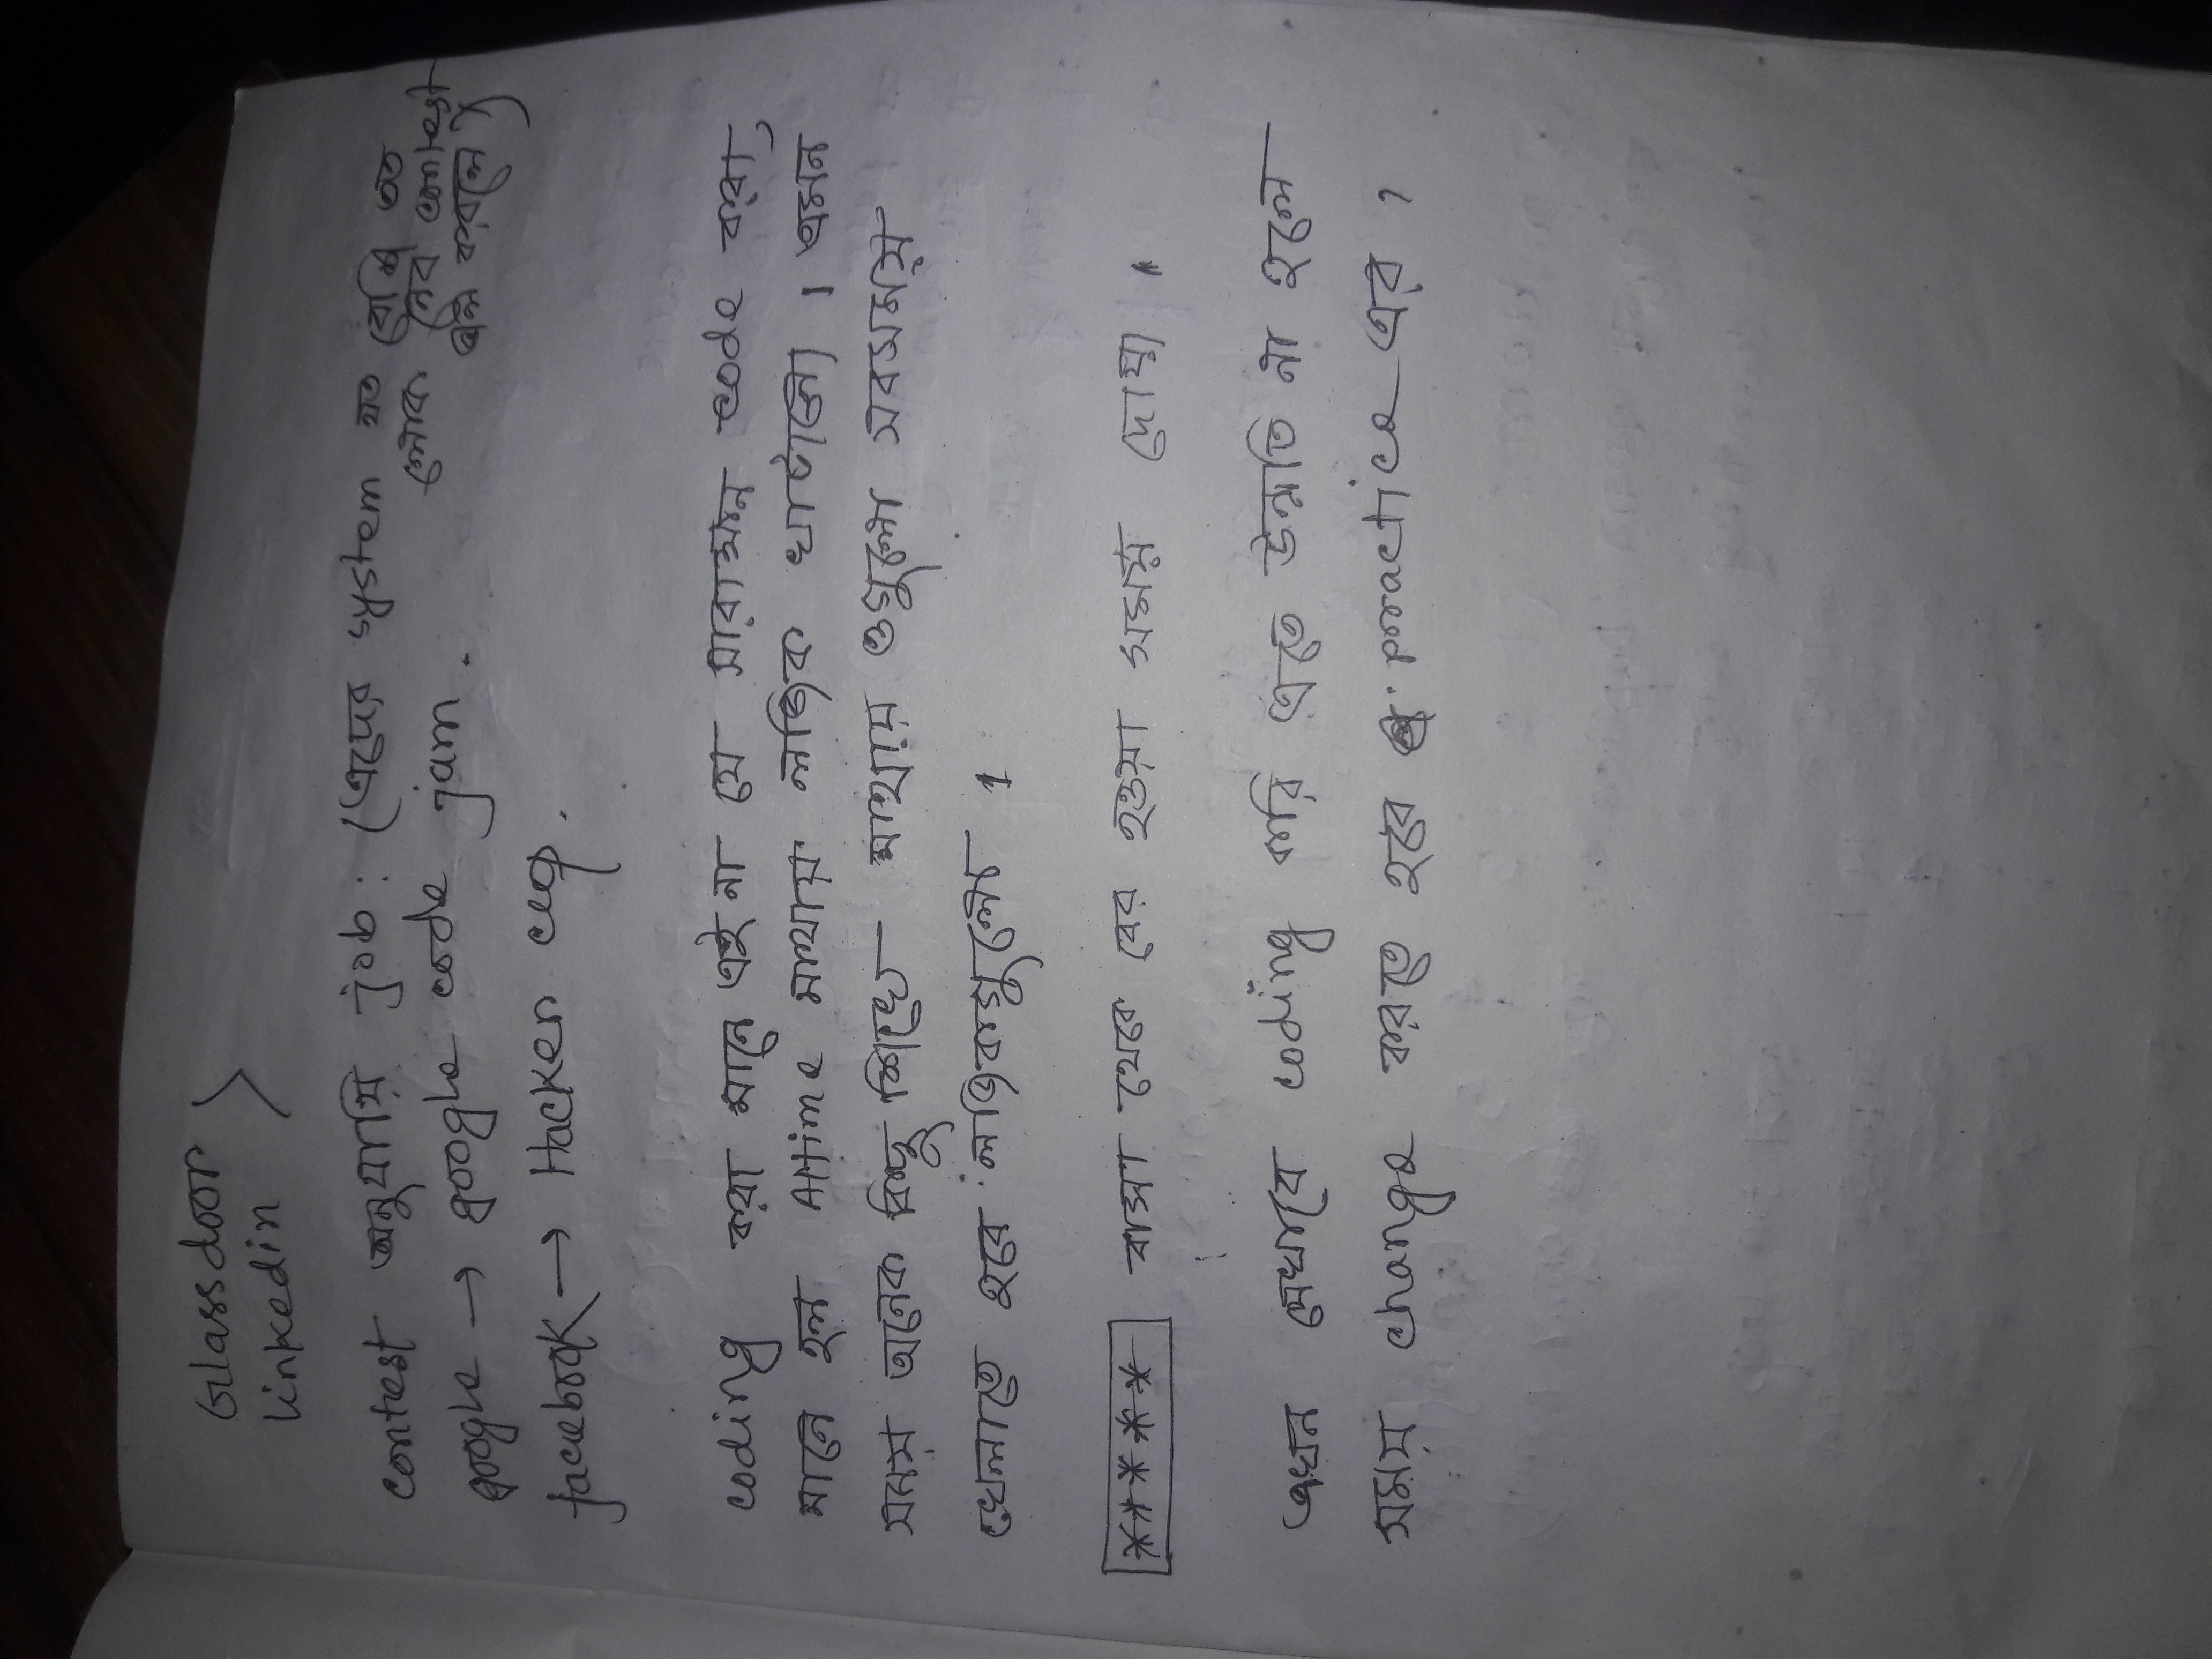 Glassdoor
linkedin
contest অনুযায়ি job: (এদের system যত বেশি তত
লোক নেব contest
করলে)
google → google code jam.
facebook → Hacker cup.
coding করা মানে এই না যে সারাক্ষন code করা,
মানে হল Alltime মাথায় লজিক খাটানো। এমন
সময় অনেক কিছু শিখে মাথায় ওগুলো সবসময়
খেলাতে হবে লজিকগুলো।
***** বাসা থেকে বের হওয়া সময় দোয়া।
এখন যেখাবে coding করি এতে উন্নতি না হলে
সময় change করতে হবে practice এর।